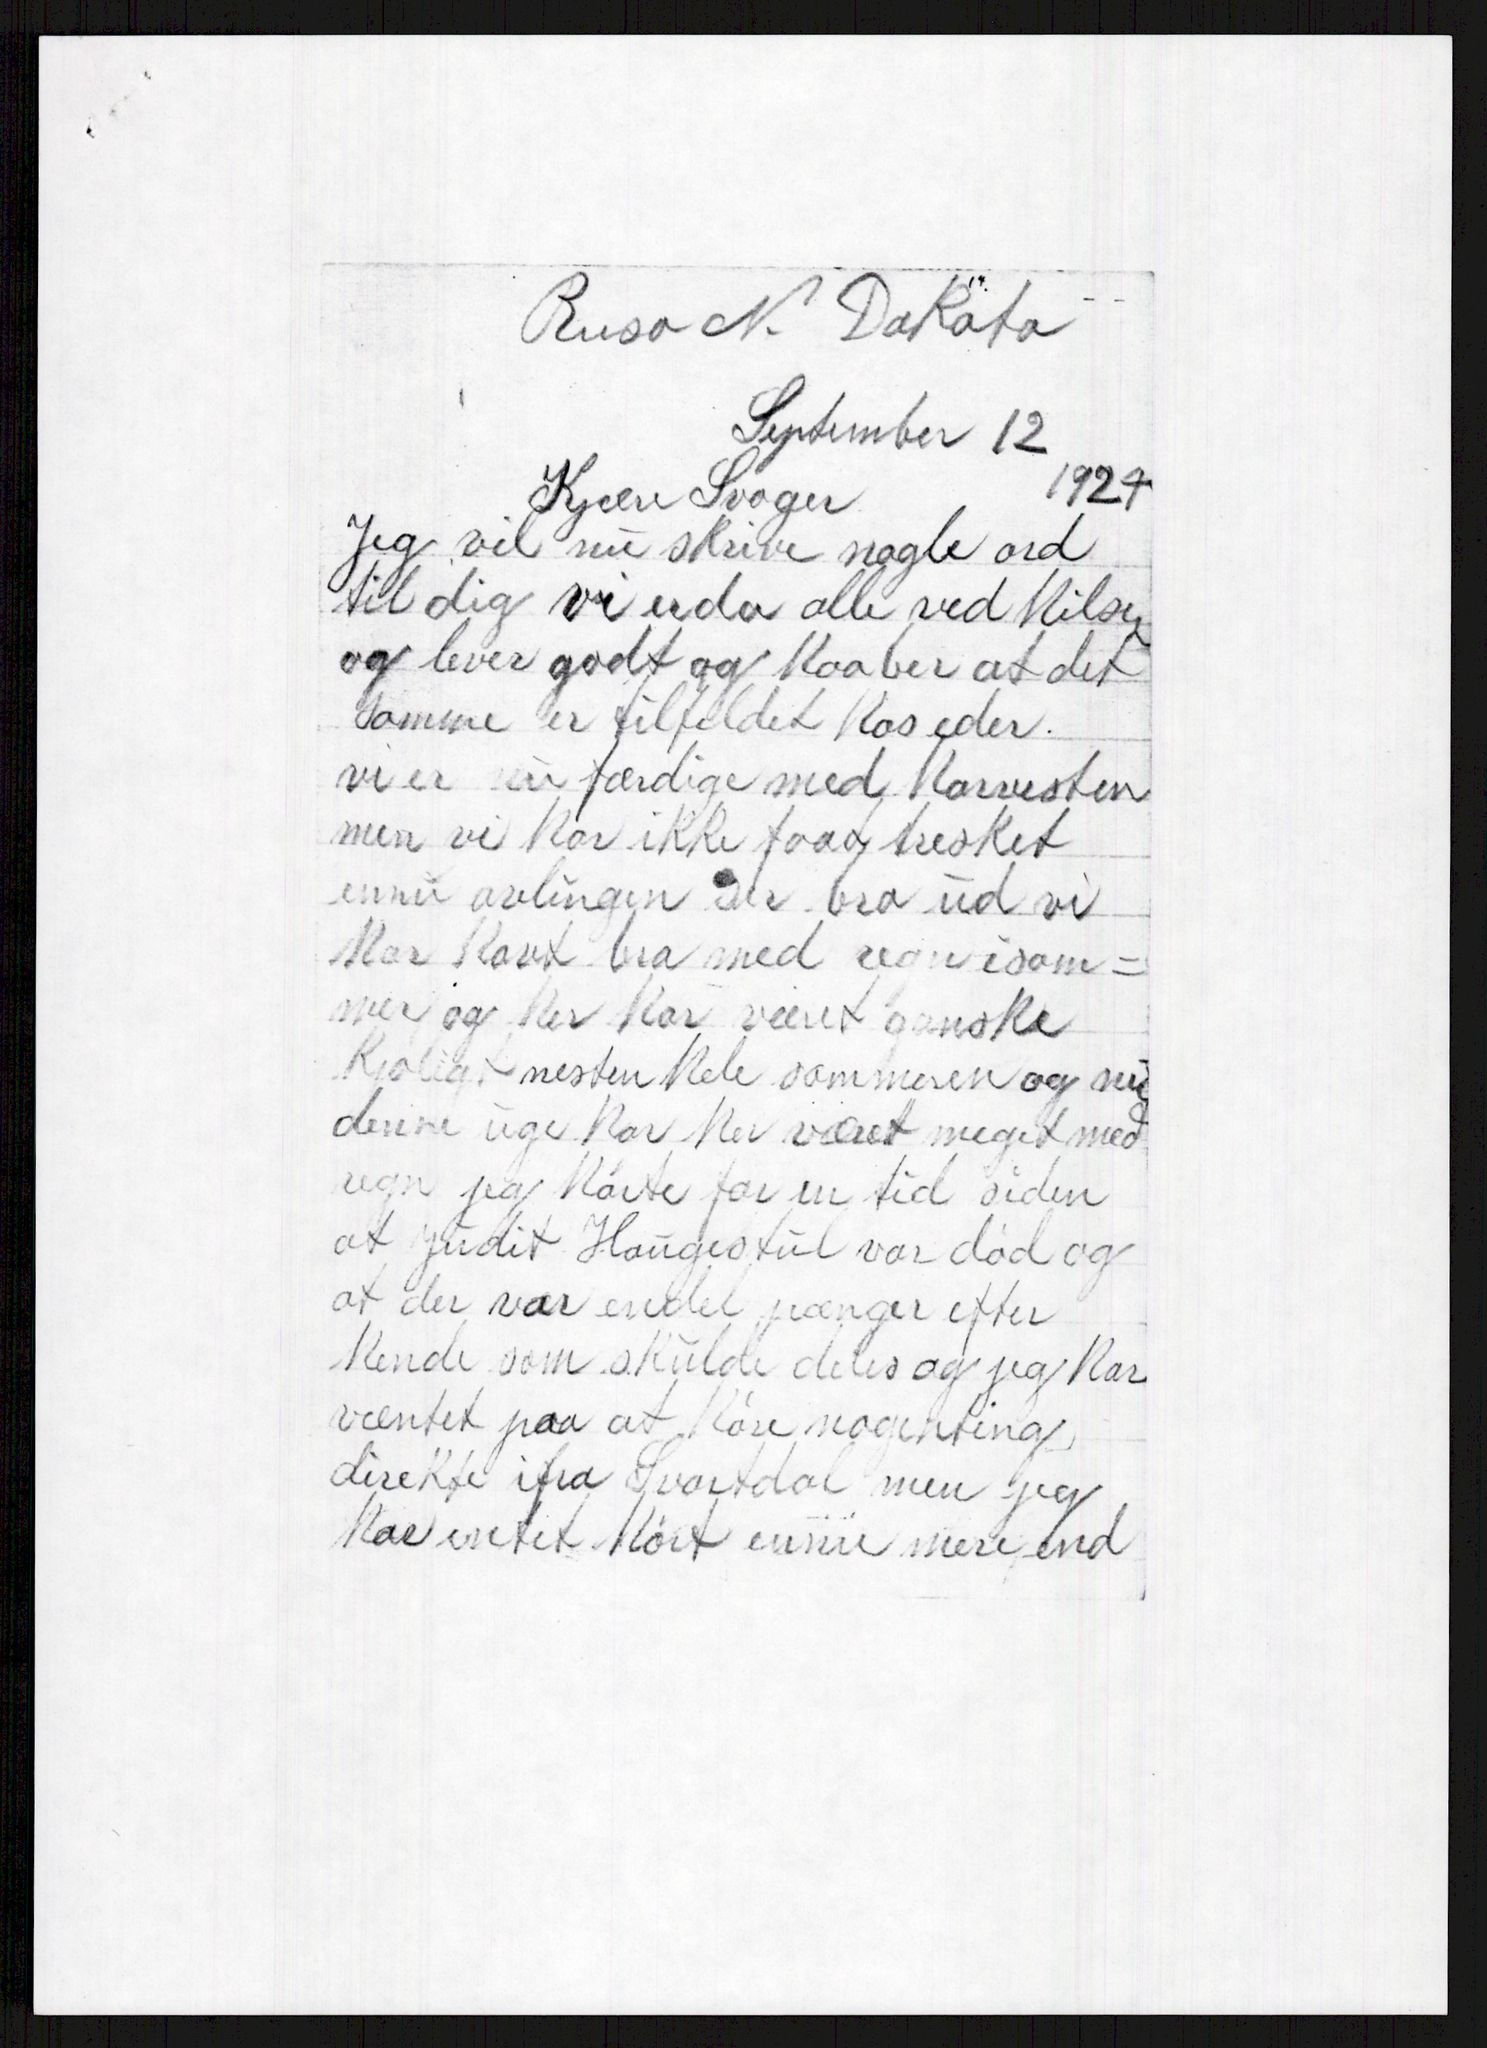 Ruso N. Dakota
September 12
1924
Kjære Svoger
Jeg vil nu skrive nogle ord
til dig vi er da alle ved hilsen
og lever godt og haaber at det
samme er tilfeldet hos eder.
vi er nu færdige med harvesten
men vi har ikke faat tresket
ennu avlingen ser bra ud vi
har havt bra med regn isom=
mer og her har været ganske
kjoligt nesten hele sommeren og nu
denne uge har her været meget med
regn jeg hórte for en tid siden
at Judit Haugestul var dód og
at der var endel pænger efter
hende som skulde deles og jeg har
væntet paa at hóre nogenting
direkte ifra Svartdal men jeg
har intet hórt ennu mere end